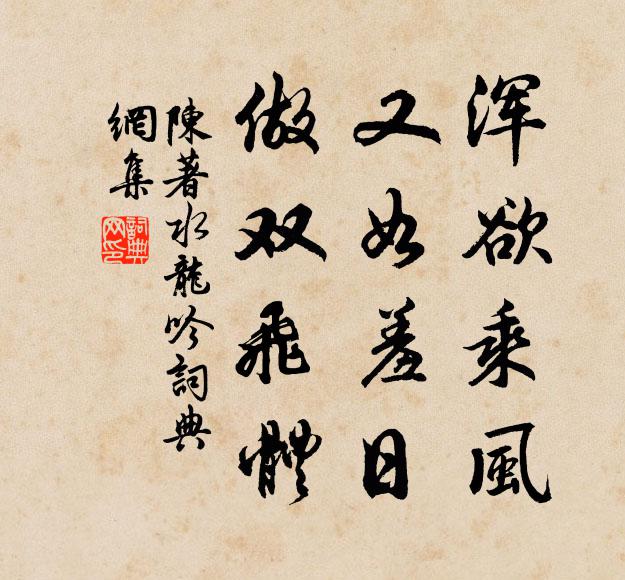 浑欲乘風
又如羞日
做双飛體
陳著水龍吟詞典
網集
詞典
网印